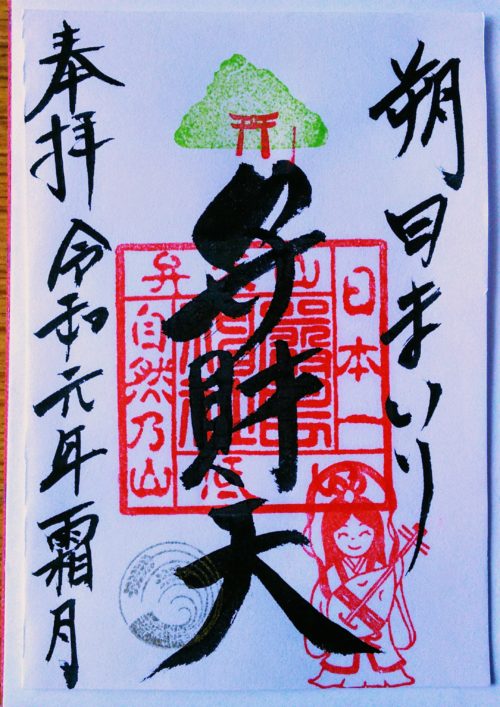 朔日まいり
弁財天
奉拝 令和元年霜月
日本一低
弁天山
自然乃山